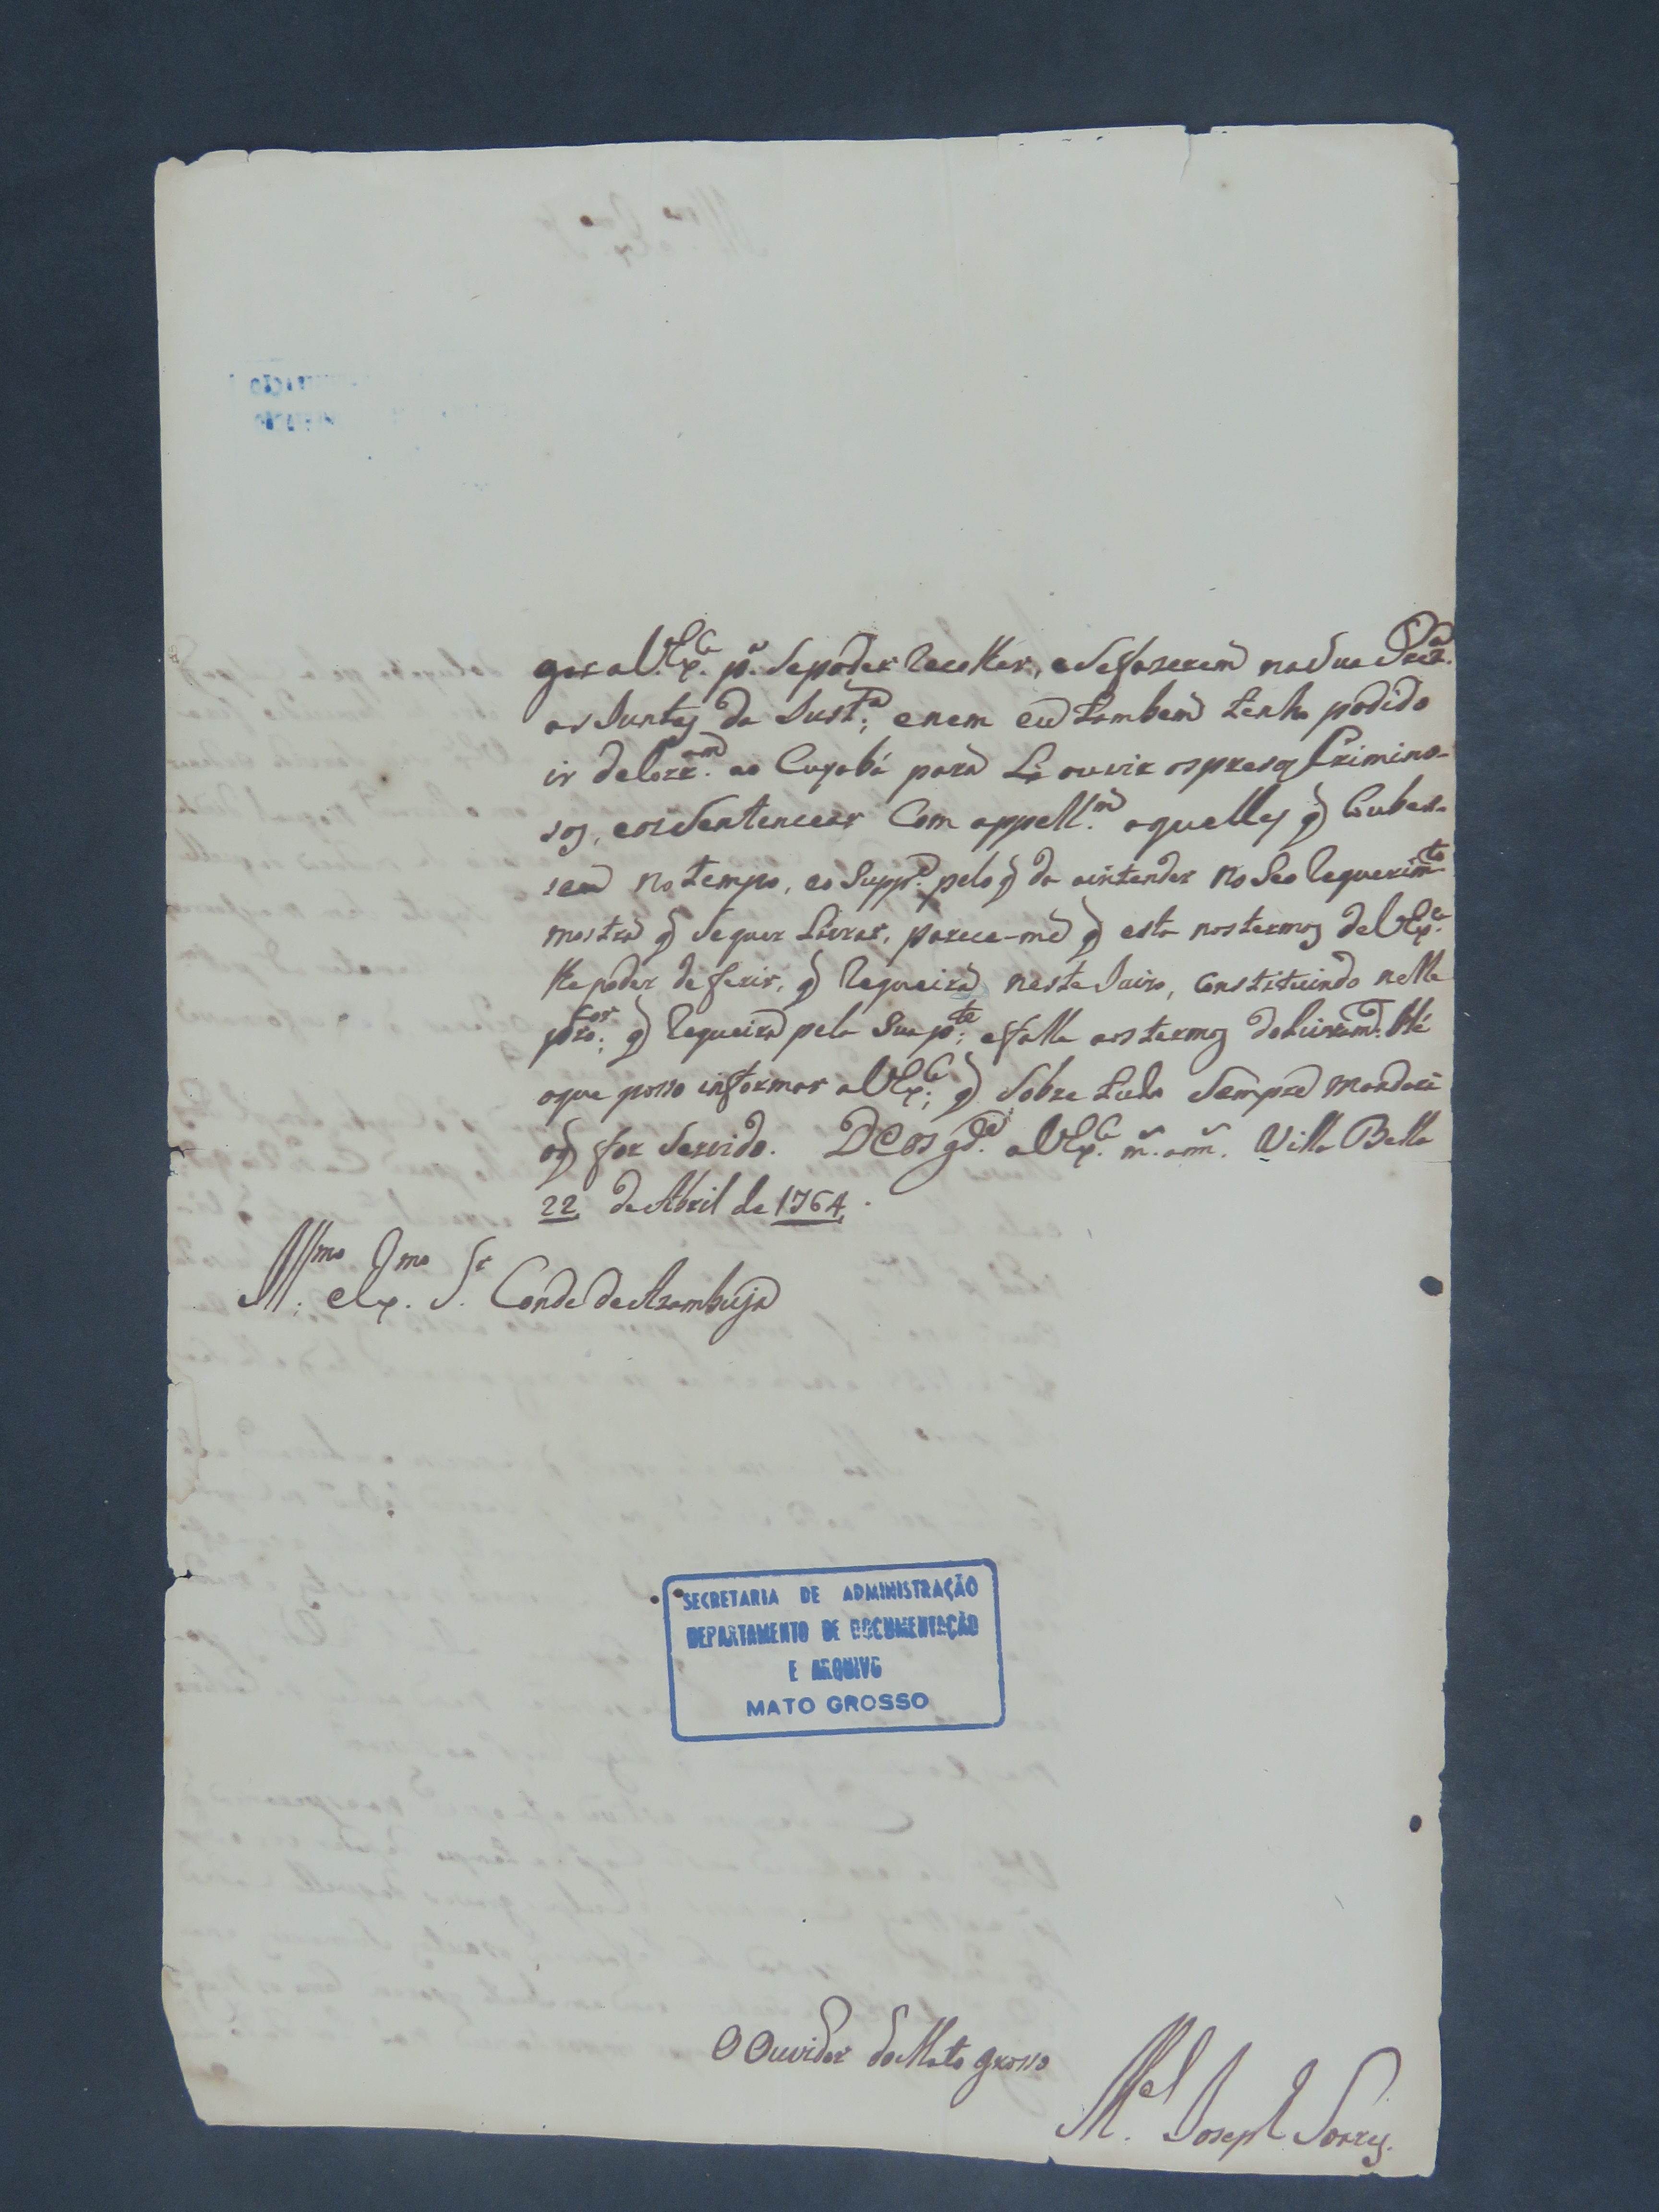 gar a V. Ex.ª p.ª se poder recolher, e se fazerem na sua Prez.ª
as Juntas da Just.ª; e nem eu tambem tenho podido
ir de Corr.am ao Cuyabá para Lá ouvir os presos Crimino-
sos, e os Sentencear Com appell.m aquelles q̃ Coubes-
sem no tempo, e o Supp.e pelo q̃ da aintender no Seo Requerim.to
mostra q̃ se quer Livrar, parece-me q̃ esta nos termos de V Ex.ª
lhe poder deferir, q̃ Requeira neste Juizo, Constituindo nelle
proc.or q̃ Requeira pela Sua p.te; e falle aos termos do Livram.to Hé
o que posso informar a V Ex.ª; q̃ Sobre tudo Sempre mandará
o q̃ for Servido. Deos g.de a V Ex.ª m.s ann.s Villa Bella
22 de Abril de 1764.
Ill.mo e Ex.mo S.r Conde de Azambuja
SECRETARIA DE ADMINISTRAÇÃO
DEPARTAMENTO DE DOCUMENTAÇÃO
E ARQUIVO
MATO GROSSO
O Ouvidor do Mato grosso
M.el Joseph Soares.